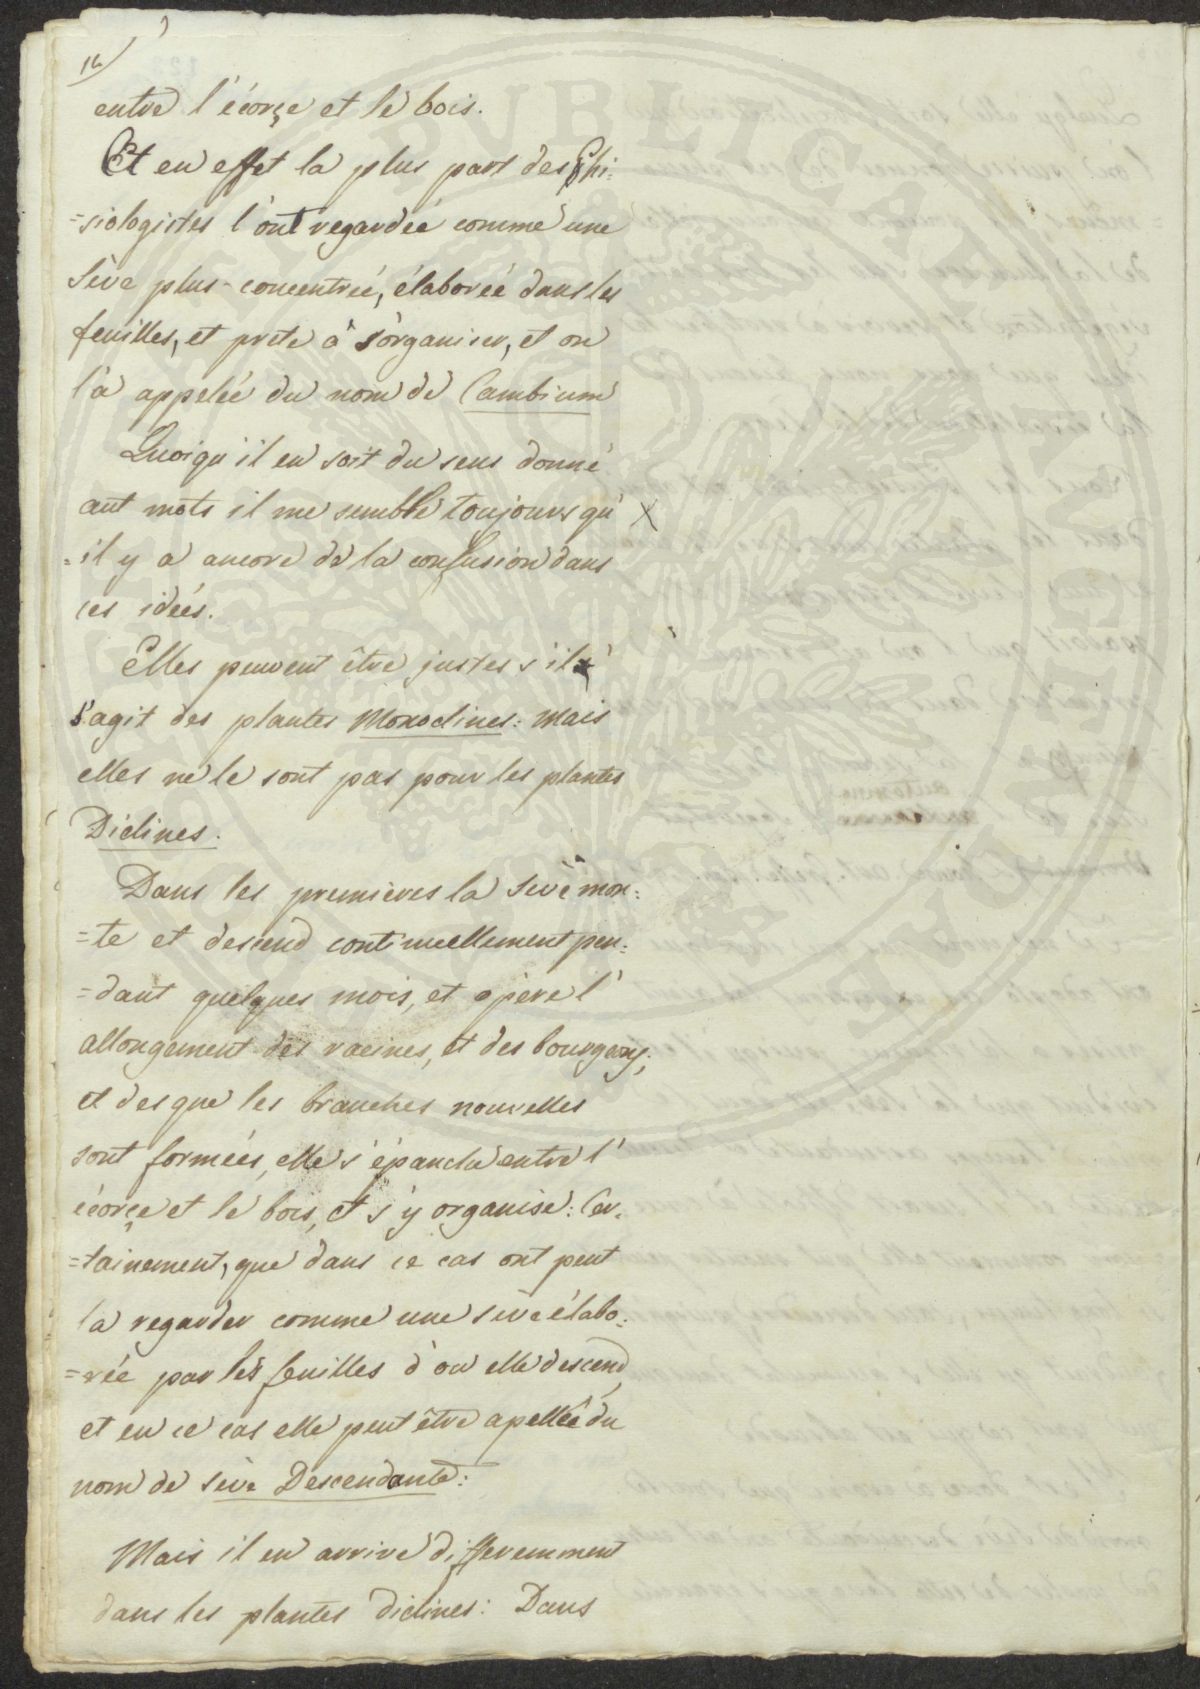 16
entre l'écorçe et le bois.
Et en effet la plus part des Phi-
=siologistes l'ont regardée comme une
Sève plus concentrée, élaborée dans les
feuilles, et prete à s'organiser, et on
l'a appelée du nom de Cambium
Quoiqu'il en soit du sens donné
aut mots il me semble toujours qu'
=il y a ancore de la confusion dans
ces idées.
Elles peuvent être justes s'il
s'agit des plantes Monoclines: mais
elles ne le sont pas pour les plantes
Diclines.
Dans les premières la Seve mon:
=te et descend continuellement pen:
=dant quelques mois, et opere l'
allongement des racines, et des bourgeons;
et des que les branches nouvelles
sont formées, elle s'épanche entre l'
écorçe et le bois, et s'y organise: Cer-
=tainement, que dans ce cas ont peut
la regarder comme une seve élabo:
=rée par les feuilles d'ou elle descend,
et en ce cas elle peut être apellée du
nom de Seve Descendante:
Mais il en arrive differemment
dans les plantes diclines: Dans
PVBLICAT